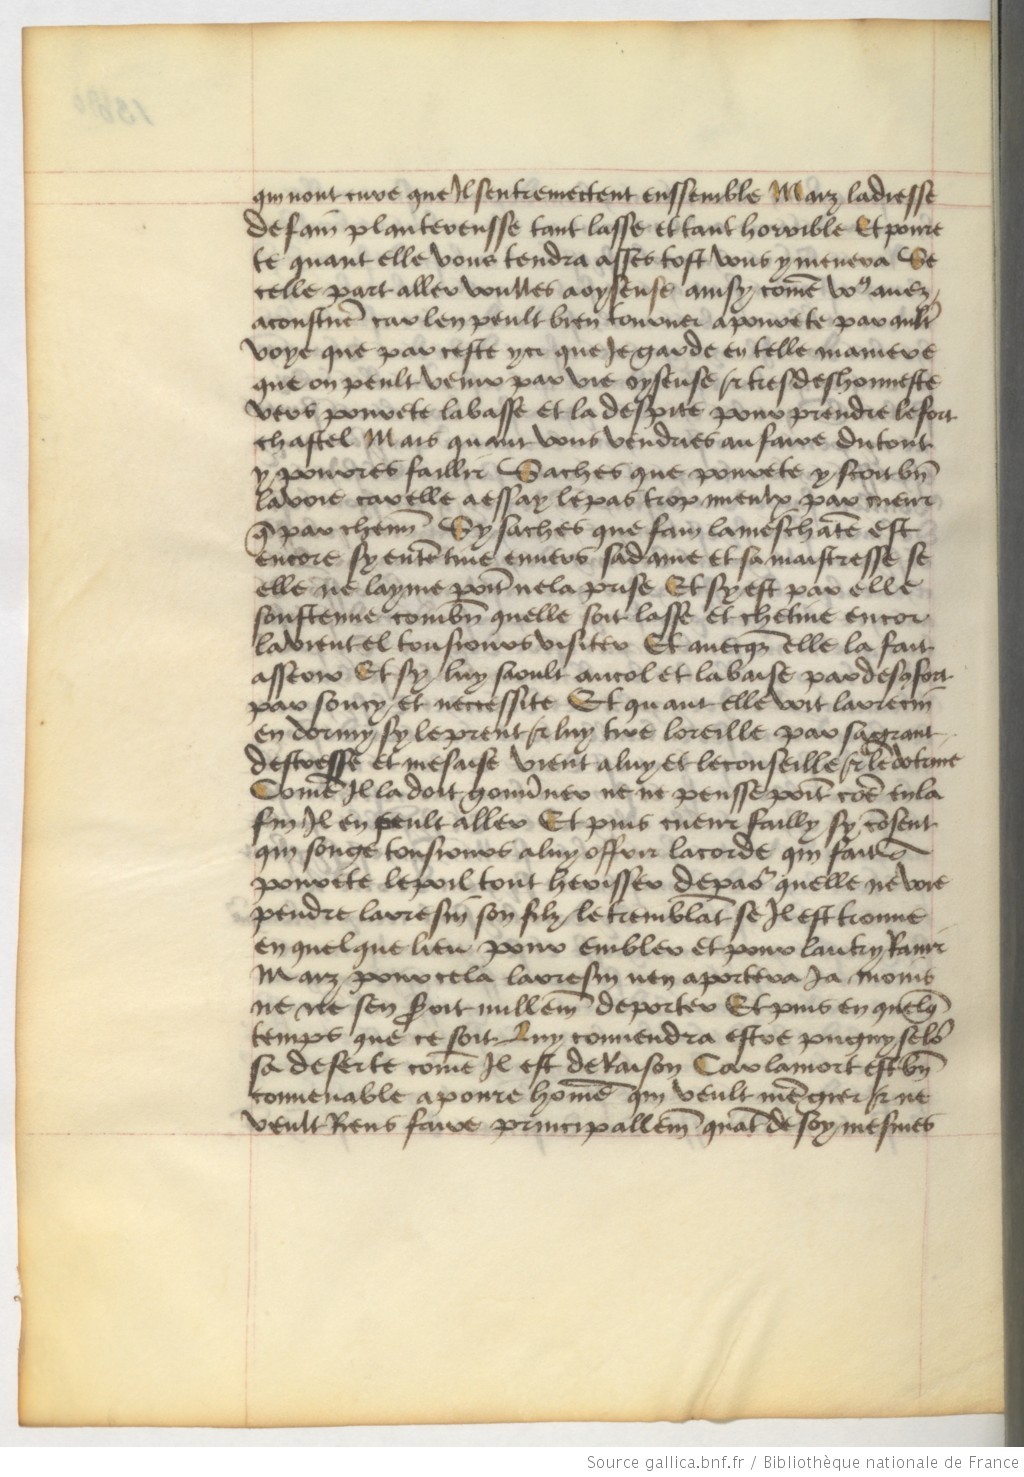 qui nont cure que Il sentremectent enssemble Marz ladresse
de faim plantereusse tant lasse et tant horrible Et povre
te quant elle vous tendra asses tost vous y menera Se
celle part aller voulles aoyseuse ainsy come vo9 avez
acoustume car len peult bien tourner a povrete par aultre
voye que par ceste ycy que Je garde en telle maniere
que on peult venir par vie oyseuse & tres deshonneste
vers povrete la basse et la despite pour prendre le fort
chastel Mais quant vous vendries au faire du tout
y pourres faillir Saches que povrete y scoit bn
la voie car elle a essay le pas trop mieulx par cueur
q par chemin Sy saches que faim la meschate est
encore sy ententive envers sa dame et sa maistresse se
elle ne layme point ne la prise Et sy est par elle
soustenue combn quelle soit lasse et chetive encor
la vient el tousiours visiter Et avecqz elle la fait
asseoir Et sy luy sault au col et la baise par desconfort
par soucy et neccessite Et quant elle voit larrecin
en dormy sy le prent & luy tire loreille par sa grant
destresse et mesaise vient a luy et le conseille & le dotrine
Comē Il la doit gouverner ne ne pensse point coē en la
fin Il en peult aller Et puis cueur failly sy cōsent
qui songe tousiours a luy offrir la corde qui fait a
povrete le poil tout herisser de paor quelle ne voie
pendre larresin son filz le tremblāt se Il est trouve
en quelque lieu pour embler et pour lautry Ravir
Marz pour cela larresin nen aportera Ja moins
ne ne sen vroit nullemēt deporter Et puis en quelq
temps que ce soit Luy conviendra estre pugny selō
sa deserte comē Il est de Raison Car la mort est bn
convenable a povre homē qui veult mēgier & ne
veult Riens faire principallemēt quāt de soy mesmes
Source gallica.bnf.fr / Bibliothèque nationale de France